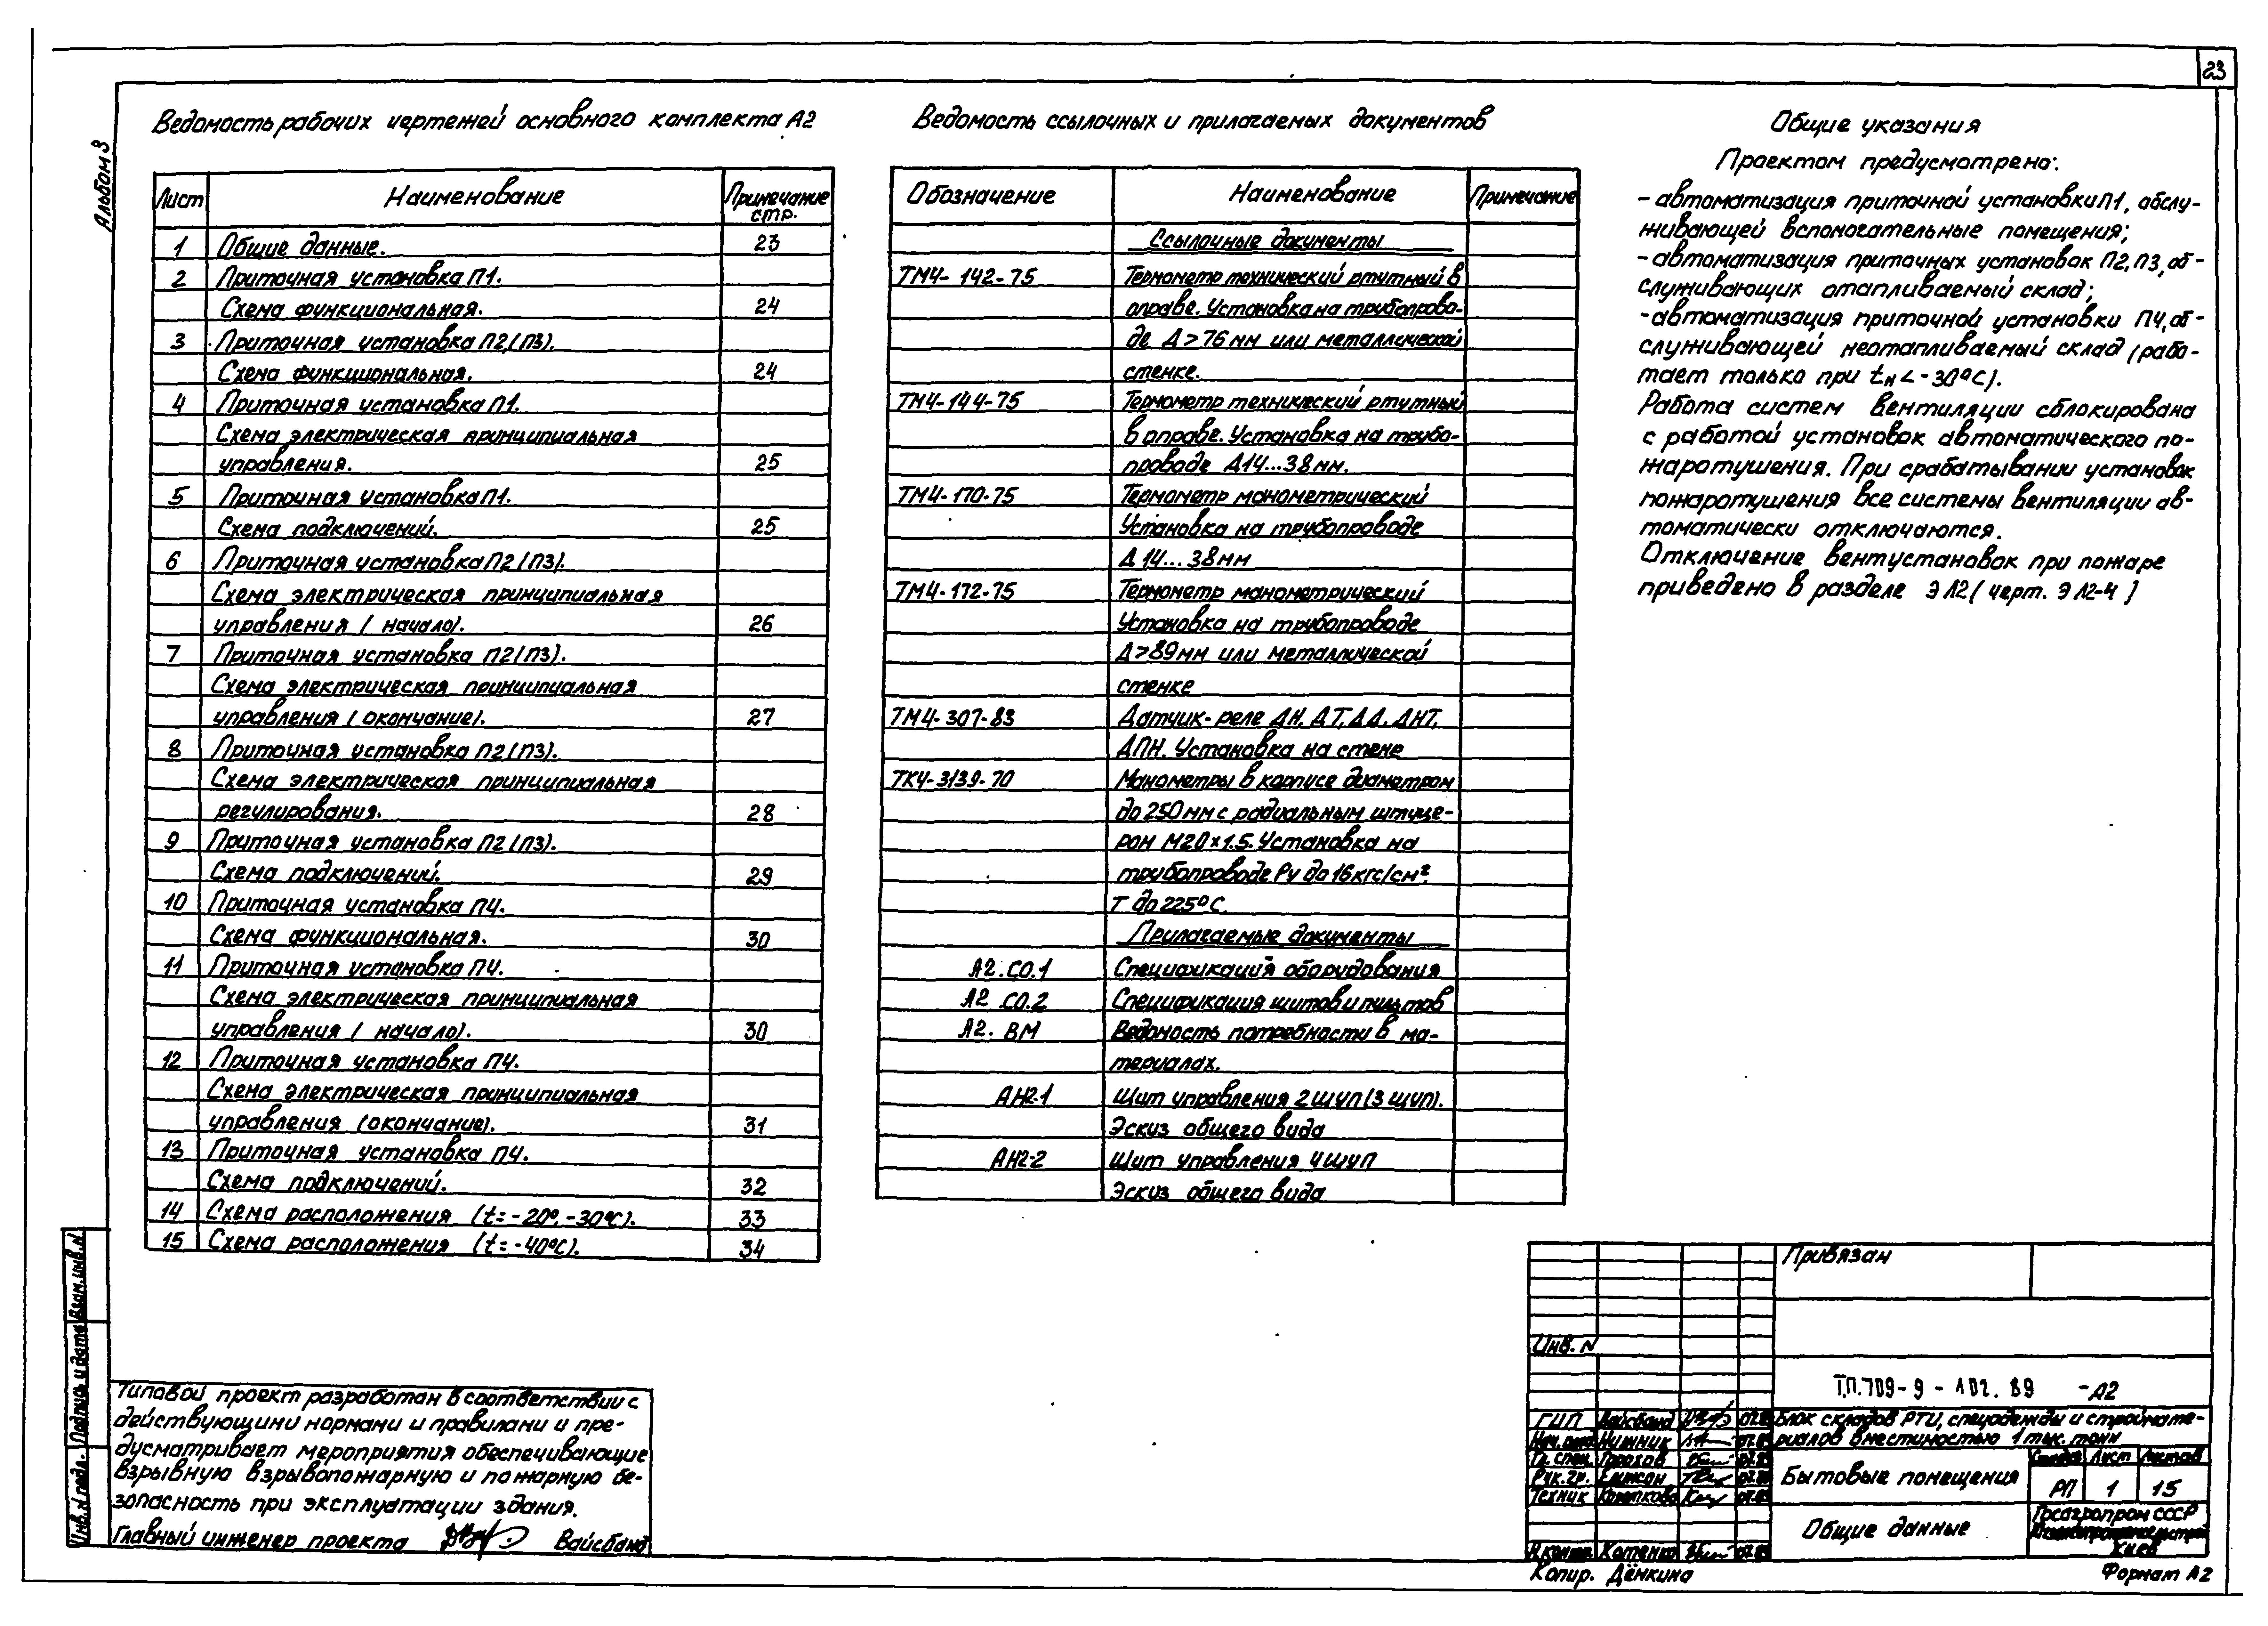 23
Альбом 3
Ведомость рабочих чертежей основного комплекта А2
Лист Наименование Примечание стр.
1 Общие данные. 23
2 Приточная установка П1.
Схема функциональная. 24
3 Приточная установка П2,(П3).
Схема функциональная. 24
4 Приточная установка П1.
Схема электрическая принципиальная
управления. 25
5 Приточная установка П1.
Схема подключений. 25
6 Приточная установка П2(П3).
Схема электрическая принципиальная
управления (начало). 26
7 Приточная установка П2(П3).
Схема электрическая принципиальная
управления (окончание). 27
8 Приточная установка П2(П3).
Схема электрическая принципиальная
регулирования. 28
9 Приточная установка П2(П3).
Схема подключений. 29
10 Приточная установка П4.
Схема функциональная. 30
11 Приточная установка П4.
Схема электрическая принципиальная
управления (начало). 30
12 Приточная установка П4.
Схема электрическая принципиальная
управления (окончание). 31
13 Приточная установка П4.
Схема подключений. 32
14 Схема расположения (t=-20°,-30°С). 33
15 Схема расположения (t=-40°С). 34
Ведомость ссылочных и прилагаемых документов
Обозначение Наименование Примечание
Ссылочные документы
ТМ4-142-75 Термометр технический ртутный в
оправе. Установка на трубопрово-
де Д>76мм или металлической
стенке.
ТМ4-144-75 Термометр технический ртутный
в оправе. Установка на трубо-
проводе Д14...38мм.
ТМ4-170-75 Термометр манометрический
Установка на трубопроводе
Д 14...38мм
ТМ4-172-75 Термометр манометрический
Установка на трубопроводе
Д>89мм или металлической
стенке
ТМ4-307-83 Датчик-реле ДН, ДТ, ДД, ДНТ,
ДПН. Установка на стене
ТК4-3139-70 Манометры в корпусе диаметром
до 250мм с радиальным штуце-
ром М20×1.5. Установка на
трубопроводе Ру до 16кгс/см².
Т до 225°С.
Прилагаемые документы
А2.СО.1 Спецификация оборудования
А2.СО.2 Спецификация щитов и пультов
А2.ВМ Ведомость потребности в ма-
териалах.
АН2-1 Щит управления 2ЩУП(3ЩУП).
Эскиз общего вида
АН2-2 Щит управления 4ЩУП
Эскиз общего вида
Общие указания
Проектом предусмотрено:
-автоматизация приточной установки П1, обслу-
живающей вспомогательные помещения;
-автоматизация приточных установок П2,П3, об-
служивающих отапливаемый склад;
-автоматизация приточной установки П4, об-
служивающей неотапливаемый склад (рабо-
тает только при tн<-30°С).
Работа систем вентиляции сблокирована
с работой установок автоматического по-
жаротушения. При срабатывании установок
пожаротушения все системы вентиляции ав-
томатически отключаются.
Отключение вентустановок при пожаре
приведено в разделе ЭЛ2 (черт. ЭЛ2-4)
Типовой проект разработан в соответствии с
действующими нормами и правилами и пре-
дусматривает мероприятия обеспечивающие
взрывную взрывопожарную и пожарную бе-
зопасность при эксплуатации здания.
Главный инженер проекта Вайсбанд
Инв.N подл. Подпись и дата Взам.инв.N
Привязан
Инв. N
Т.П.709-9-102.89 -А2
ГИП Вайсбанд 07.89 Блок складов РТИ, спецодежды и строймате-
Нач.отд Нижник 07.89 риалов вместимостью 1 тыс. тонн
Гл.спец. Горохов 07.89 Бытовые помещения Стадия Лист Листов
Рук.гр. 07.89 РП 1 15
Техник Короткова 07.89
Общие данные Госагропром СССР
Киев
Н.контр. Котенко 07.89
Копир. Дёнкина Формат А2